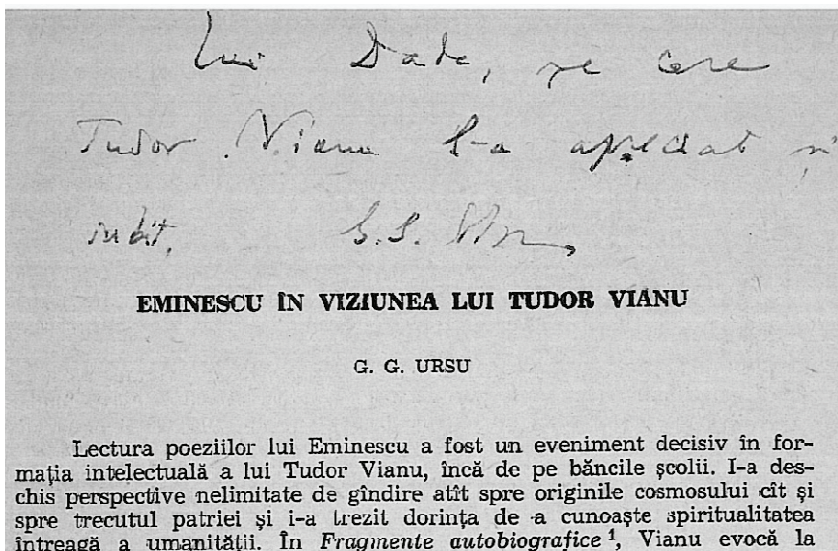 Lui Dade, pe care
Tudor Vianu l-a apreciat și
iubit. G. G. Ursu
EMINESCU ÎN VIZIUNEA LUI TUDOR VIANU
G. G. URSU
Lectura poeziilor lui Eminescu a fost un eveniment decisiv în for-
mația intelectuală a lui Tudor Vianu, încă de pe băncile școlii. I-a des-
chis perspective nelimitate de gîndire atît spre originile cosmosului cît și
spre trecutul patriei și i-a trezit dorința de a cunoaște spiritualitatea
întreagă a umanității. În Fragmente autobiografice ¹, Vianu evocă la